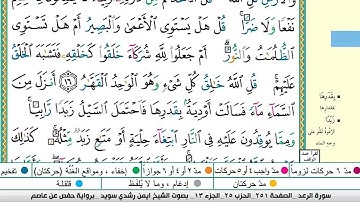 نَفْعًا وَلَا ضَرًّا ۚ قُلْ هَلْ يَسْتَوِى ٱلْأَعْمَىٰ وَٱلْبَصِيرُ أَمْ هَلْ تَسْتَوِى
ٱلظُّلُمَٰتُ وَٱلنُّورُ ۗ أَمْ جَعَلُوا۟ لِلَّهِ شُرَكَآءَ خَلَقُوا۟ كَخَلْقِهِۦ فَتَشَٰبَهَ ٱلْخَلْقُ
عَلَيْهِمْ ۚ قُلِ ٱللَّهُ خَٰلِقُ كُلِّ شَىْءٍ وَهُوَ ٱلْوَٰحِدُ ٱلْقَهَّٰرُ ١٦ أَنزَلَ مِنَ
ٱلسَّمَآءِ مَآءً فَسَالَتْ أَوْدِيَةٌۢ بِقَدَرِهَا فَٱحْتَمَلَ ٱلسَّيْلُ زَبَدًا رَّابِيًا ۚ
وَمِمَّا يُوقِدُونَ عَلَيْهِ فِى ٱلنَّارِ ٱبْتِغَآءَ حِلْيَةٍ أَوْ مَتَٰعٍ زَبَدٌ مِّثْلُهُۥ ۚ كَذَٰلِكَ
بِقَدَرِهَا
بمقدارها
زَبَدًا
مدّ ٦ حركات لزوماً
مدّ واجب ٤ أو ٥ حركات
مدّ ٢ أو ٤ أو ٦ جوازاً
إخفاء ، ومواقع الغُنَّة (حركتان)
تفخيم
مدّ حركتان
إدغام ، وما لا يُلفظ
قلقلة
سورة الرعد
الصفحة ٢٥١
الجزء ١٣
بصوت الشيخ أيمن رشدي سويد
برواية حفص عن عاصم